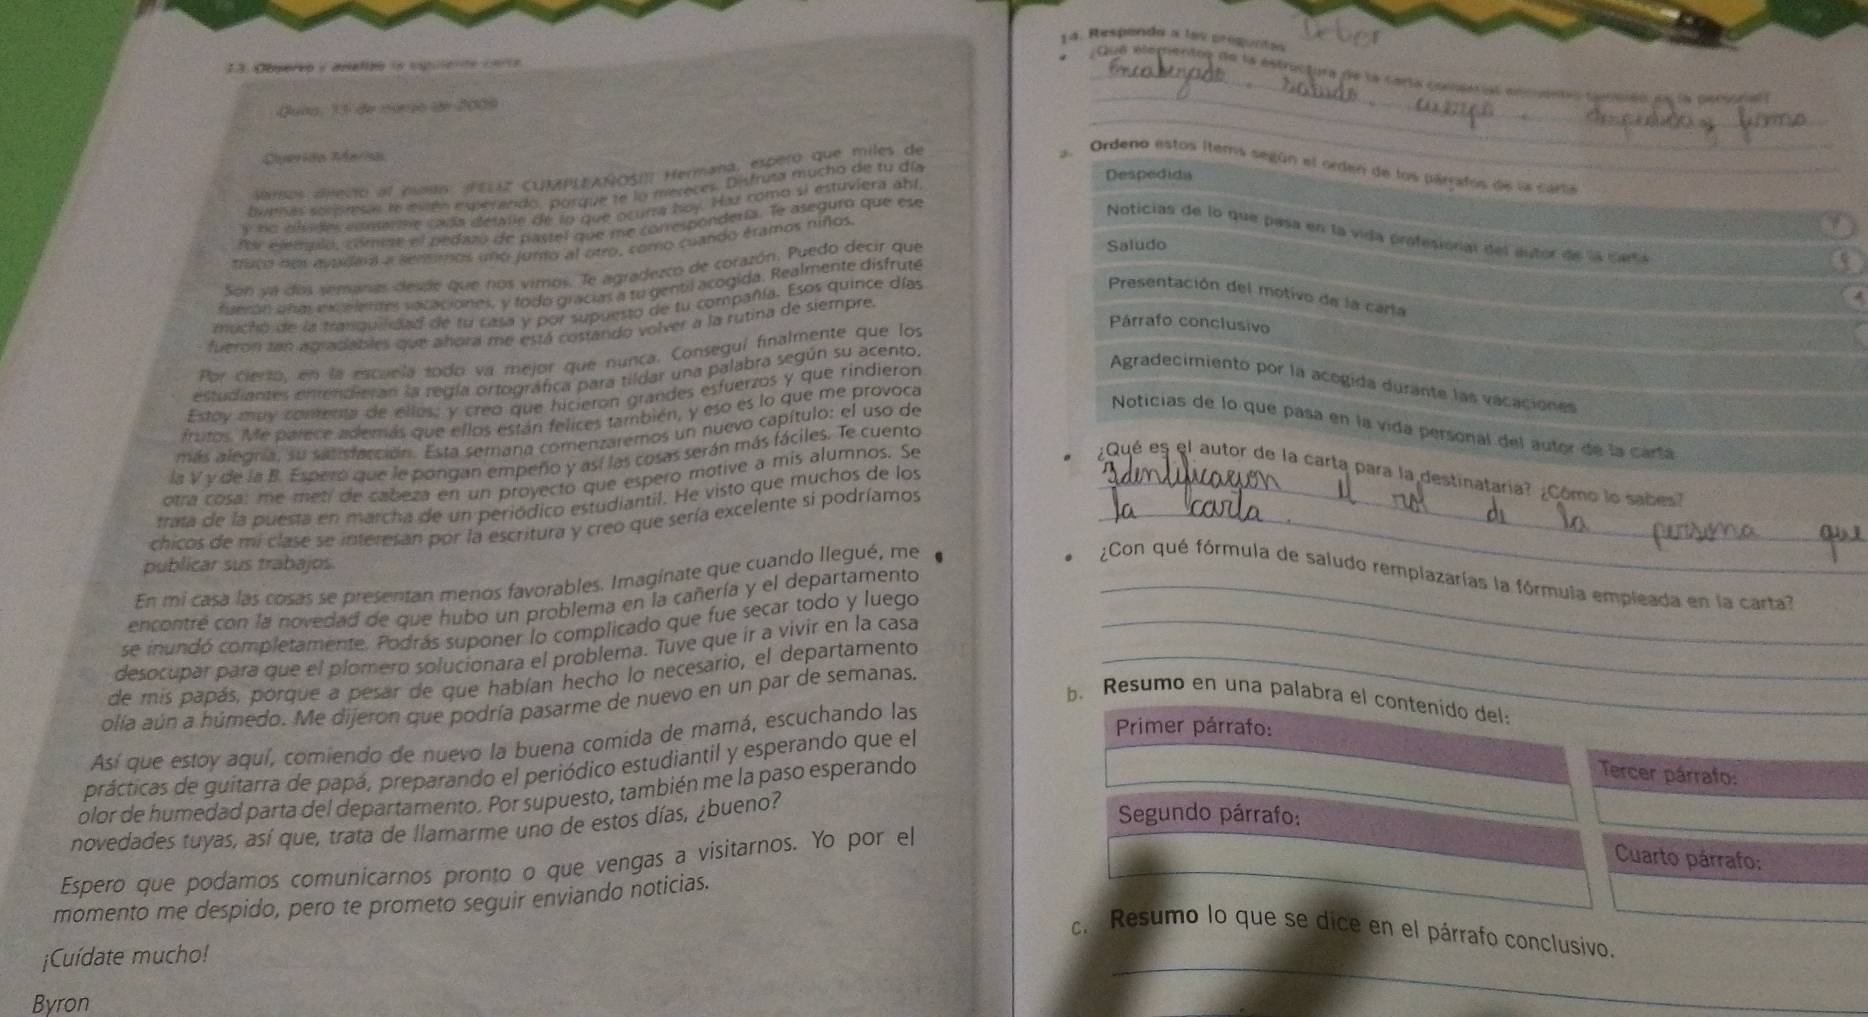 13. Observo y analizo la siguiente carta
Quito, 15 de marzo de 2009
Querida
Vamos directo al punto: ¡FELIZ CUMPLEAÑOS!!! Hermana, espero que miles de
buenas sorpresas te estén esperando, porque te lo mereces. Disfruta mucho de tu día
y no olvides contarme cada detalle de lo que ocurra hoy. Haz como si estuviera ahí.
Por ejemplo, cómete el pedazo de pastel que me correspondería. Te aseguro que ese
truco nos ayudará a sentirnos uno junto al otro, como cuando éramos niños.
Son ya dos semanas desde que nos vimos. Te agradezco de corazón. Puedo decir que
fueron unas excelentes vacaciones, y todo gracias a tu gentil acogida. Realmente disfruté
mucho de la tranquilidad de tu casa y por supuesto de tu compañía. Esos quince días
fueron tan agradables que ahora me está costando volver a la rutina de siempre.
Por cierto, en la escuela todo va mejor que nunca. Conseguí finalmente que los
estudiantes entendieran la regla ortográfica para tildar una palabra según su acento.
Estoy muy contento de ellos; y creo que hicieron grandes esfuerzos y que rindieron
frutos. Me parece además que ellos están felices también, y eso es lo que me provoca
más alegría, su satisfacción. Esta semana comenzaremos un nuevo capítulo: el uso de
la V y de la B. Espero que le pongan empeño y así las cosas serán más fáciles. Te cuento
otra cosa: me metí de cabeza en un proyecto que espero motive a mis alumnos. Se
trata de la puesta en marcha de un periódico estudiantil. He visto que muchos de los
chicos de mi clase se interesan por la escritura y creo que sería excelente si podríamos
publicar sus trabajos.
En mi casa las cosas se presentan menos favorables. Imagínate que cuando llegué, me
encontré con la novedad de que hubo un problema en la cañería y el departamento
se inundó completamente. Podrás suponer lo complicado que fue secar todo y luego
desocupar para que el plomero solucionara el problema. Tuve que ir a vivir en la casa
de mis papás, porque a pesar de que habían hecho lo necesario, el departamento
olía aún a húmedo. Me dijeron que podría pasarme de nuevo en un par de semanas.
Así que estoy aquí, comiendo de nuevo la buena comida de mamá, escuchando las
prácticas de guitarra de papá, preparando el periódico estudiantil y esperando que el
olor de humedad parta del departamento. Por supuesto, también me la paso esperando
novedades tuyas, así que, trata de llamarme uno de estos días, ¿bueno?
Espero que podamos comunicarnos pronto o que vengas a visitarnos. Yo por el
momento me despido, pero te prometo seguir enviando noticias.
¡Cuídate mucho!
Byron
Deber
14. Respondo a las preguntas
• ¿Qué elementos de la estructura de la carta comercial encuentro también en la personal?
Encabezado. Saludo. cuerpo. despedida y firma
a. Ordeno estos ítems según el orden de los párrafos de la carta
Despedida
Noticias de lo que pasa en la vida profesional del autor de la carta
Saludo
Presentación del motivo de la carta
Párrafo conclusivo
Agradecimiento por la acogida durante las vacaciones
Noticias de lo que pasa en la vida personal del autor de la carta
• ¿Qué es el autor de la carta para la destinataria? ¿Cómo lo sabes?
Identificacion el rol de la persona que
la carta.
• ¿Con qué fórmula de saludo remplazarías la fórmula empleada en la carta?
b. Resumo en una palabra el contenido del:
Primer párrafo:
Tercer párrafo:
Segundo párrafo:
Cuarto párrafo:
c. Resumo lo que se dice en el párrafo conclusivo.